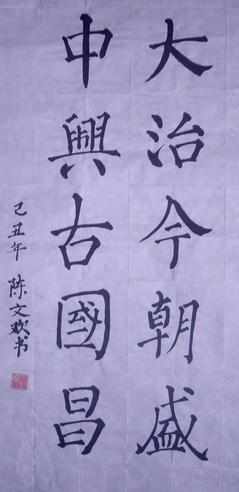 大治今朝盛
中興古國昌
己丑年 陈文欢书